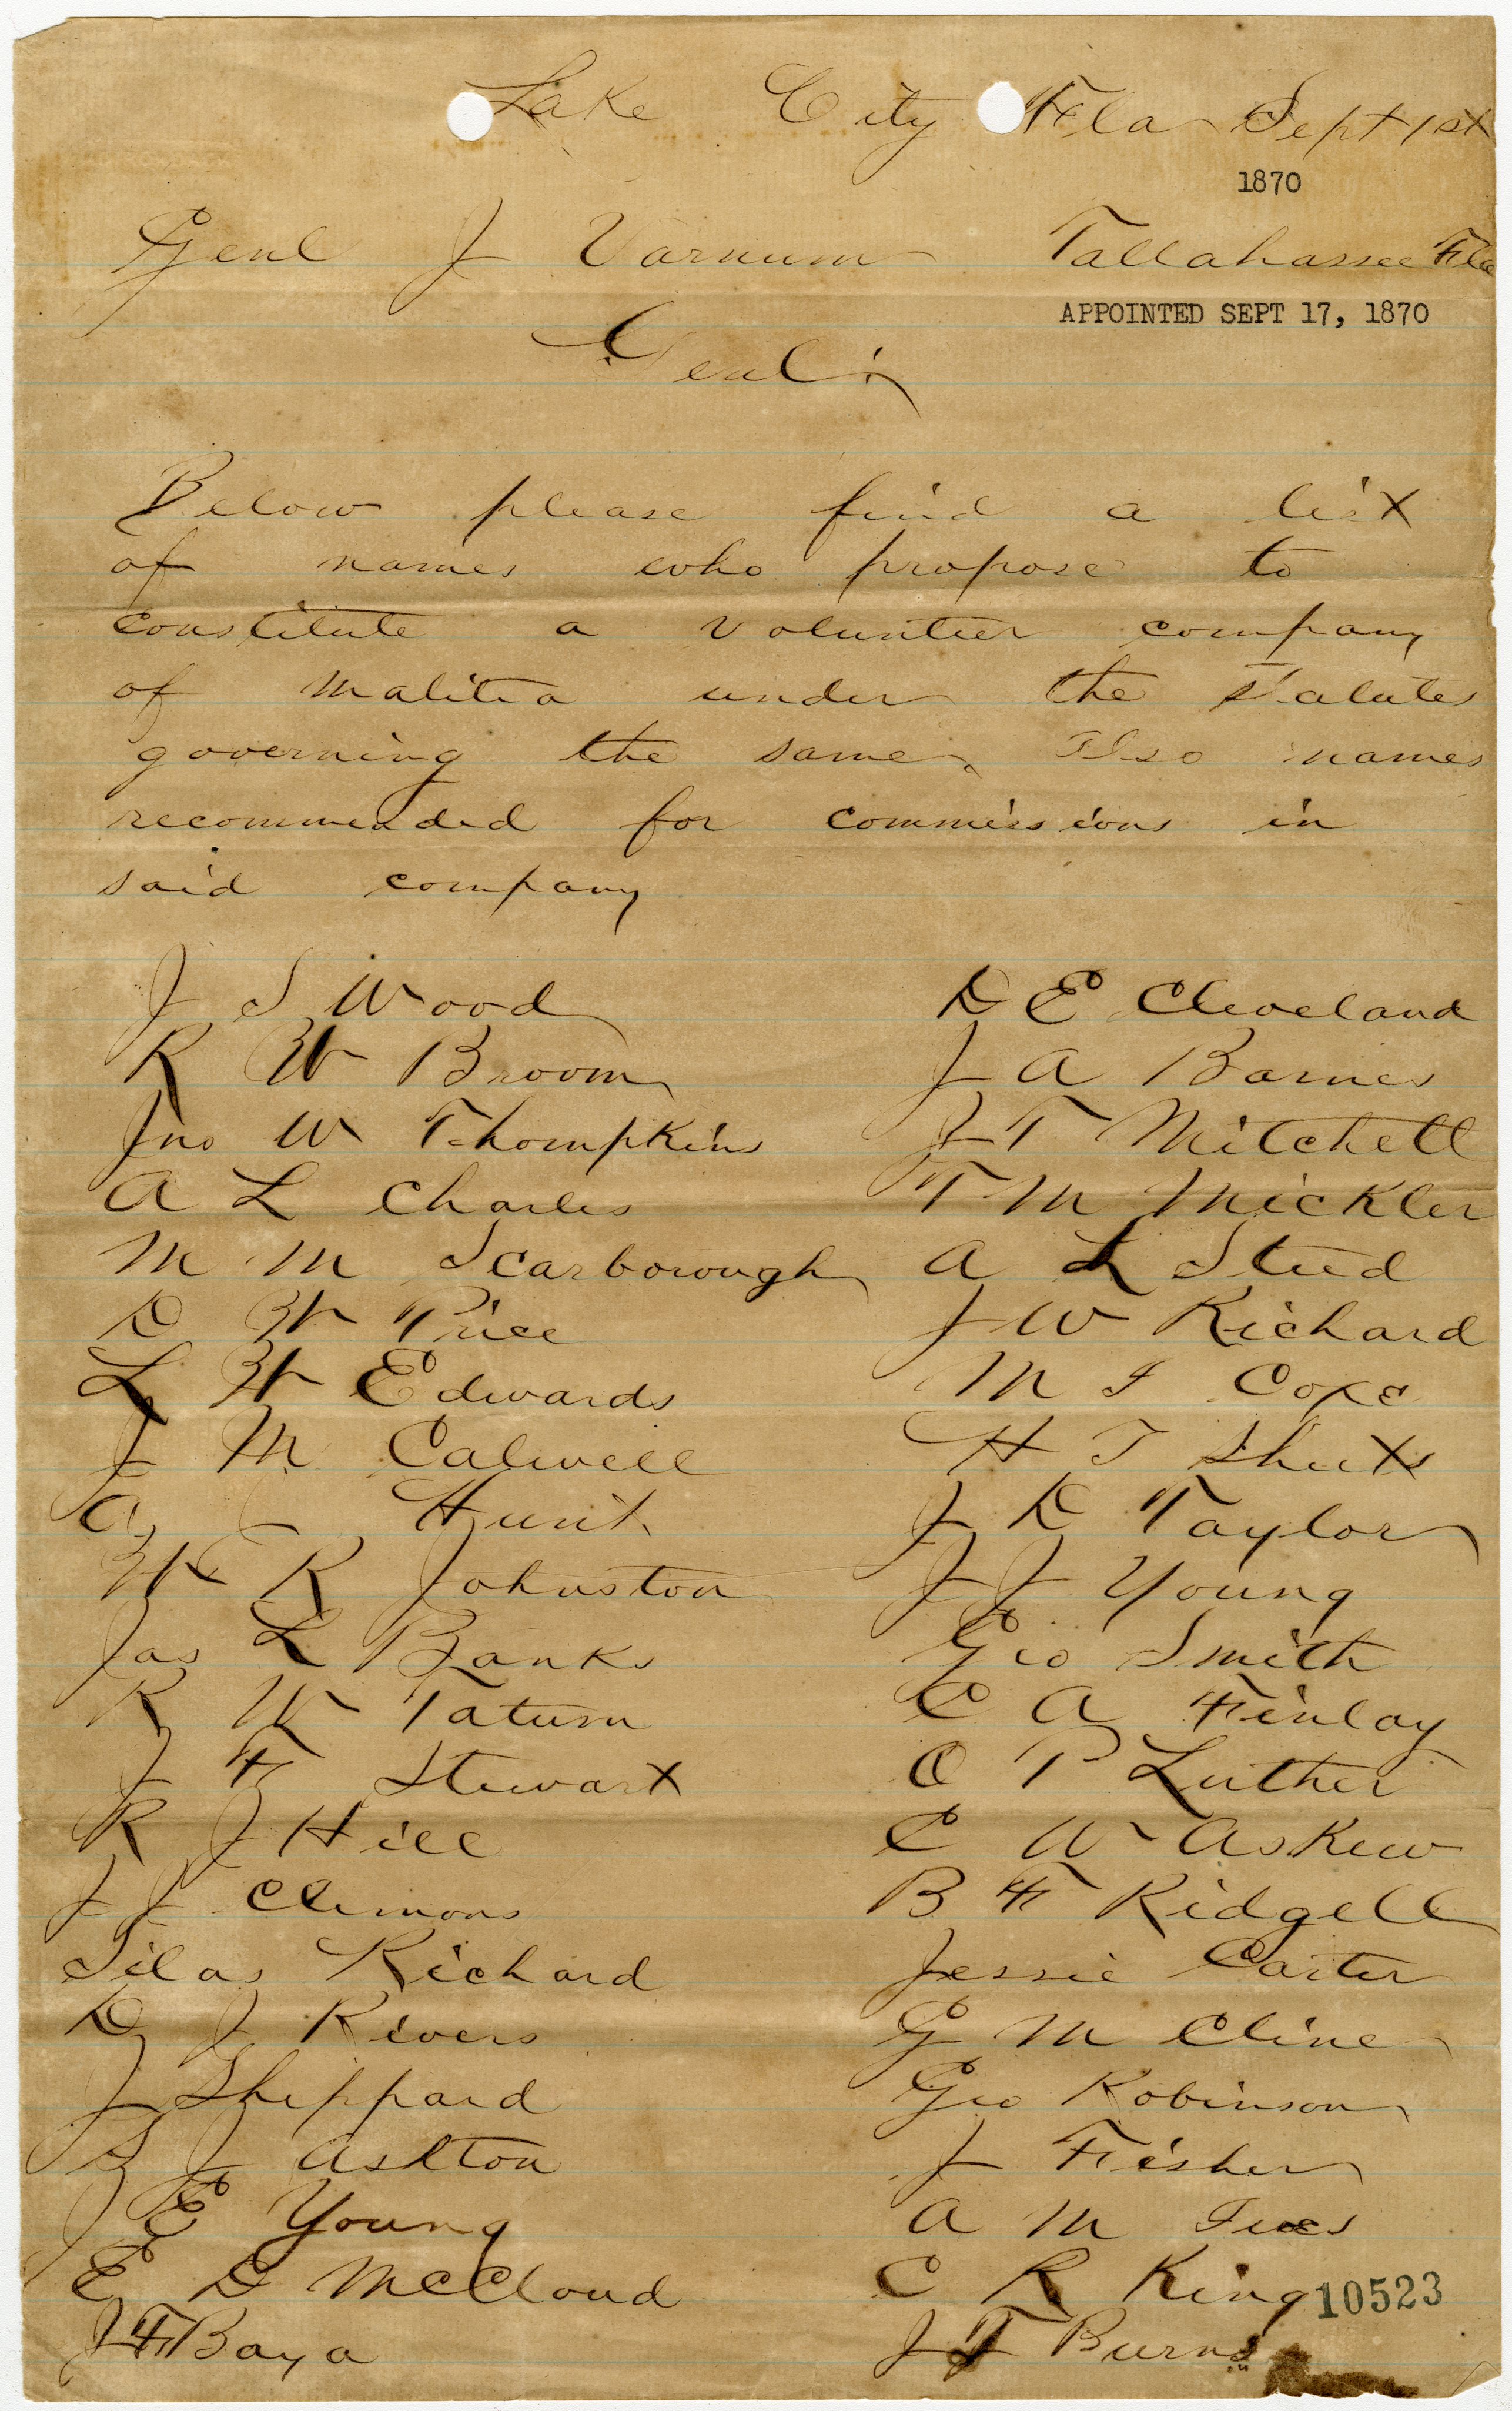 Lake City Fla Sept 1st
1870
Genl J Varnum Tallahassee Fla
APPOINTED SEPT 17, 1870
Genl;
Below please find a list
of names who propose to
constitute a volunteer company
of malitia under the Statutes
governing the same, Also names
recommended for commissions in
said company
J S Wood
R W Broom
Jno W Thompkins
A L Charles
M M Scarborough
D W Price
L W Edwards
J M Calwell
A J Hunt
W R Johnston
Jas L Banks
R W Tatum
J F Stewart
R J Hill
J J Clemons
Silas Richard
D J Rivers
J Sheppard
S J Ashton
J E Young
E D McCloud
J F Baya
D E Cleveland
J A Barnes
J T Mitchell
T M Mickler
A L Steed
J W Richard
M I Coxe
H T Sheets
J D Taylor
J J Young
Geo Smith
C A Finlay
O P Luther
C W Askew
B F Ridgell
Jessie Carter
G M Cline
Geo Robinson
J Fisher
A M
C R King
10523
J T Burns